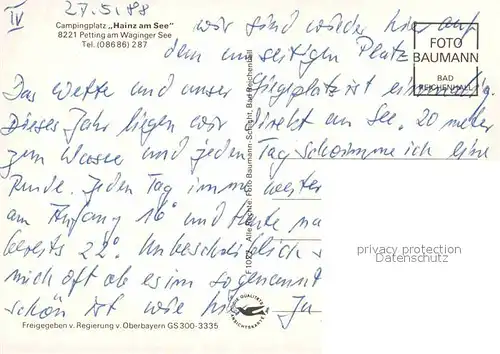 IV 27.5.88
Campingplatz „Hainz am See"
8221 Petting am Waginger See
Tel. (08686) 287
FOTO
BAUMANN
BAD
REICHENHALL
wir sind wieder hier auf
dem umseitigen Platz
Das Wetter und unser Liegeplatz ist
Dieses Jahr liegen wir direkt am See. 20 meter
zum Wasser und jeden Tag schwimme ich eine
Runde. Jeden Tag immer weiter
am Anfang 16° und heute
bereits 22°. Unbeschreiblich
mich oft ob es im sogenannt
schön ist wie hier. Ja
Alle Rechte: Foto Baumann-Schicht, Bad Reichenhall
privacy protection
Datenschutz
Freigegeben v. Regierung v. Oberbayern GS 300-3335